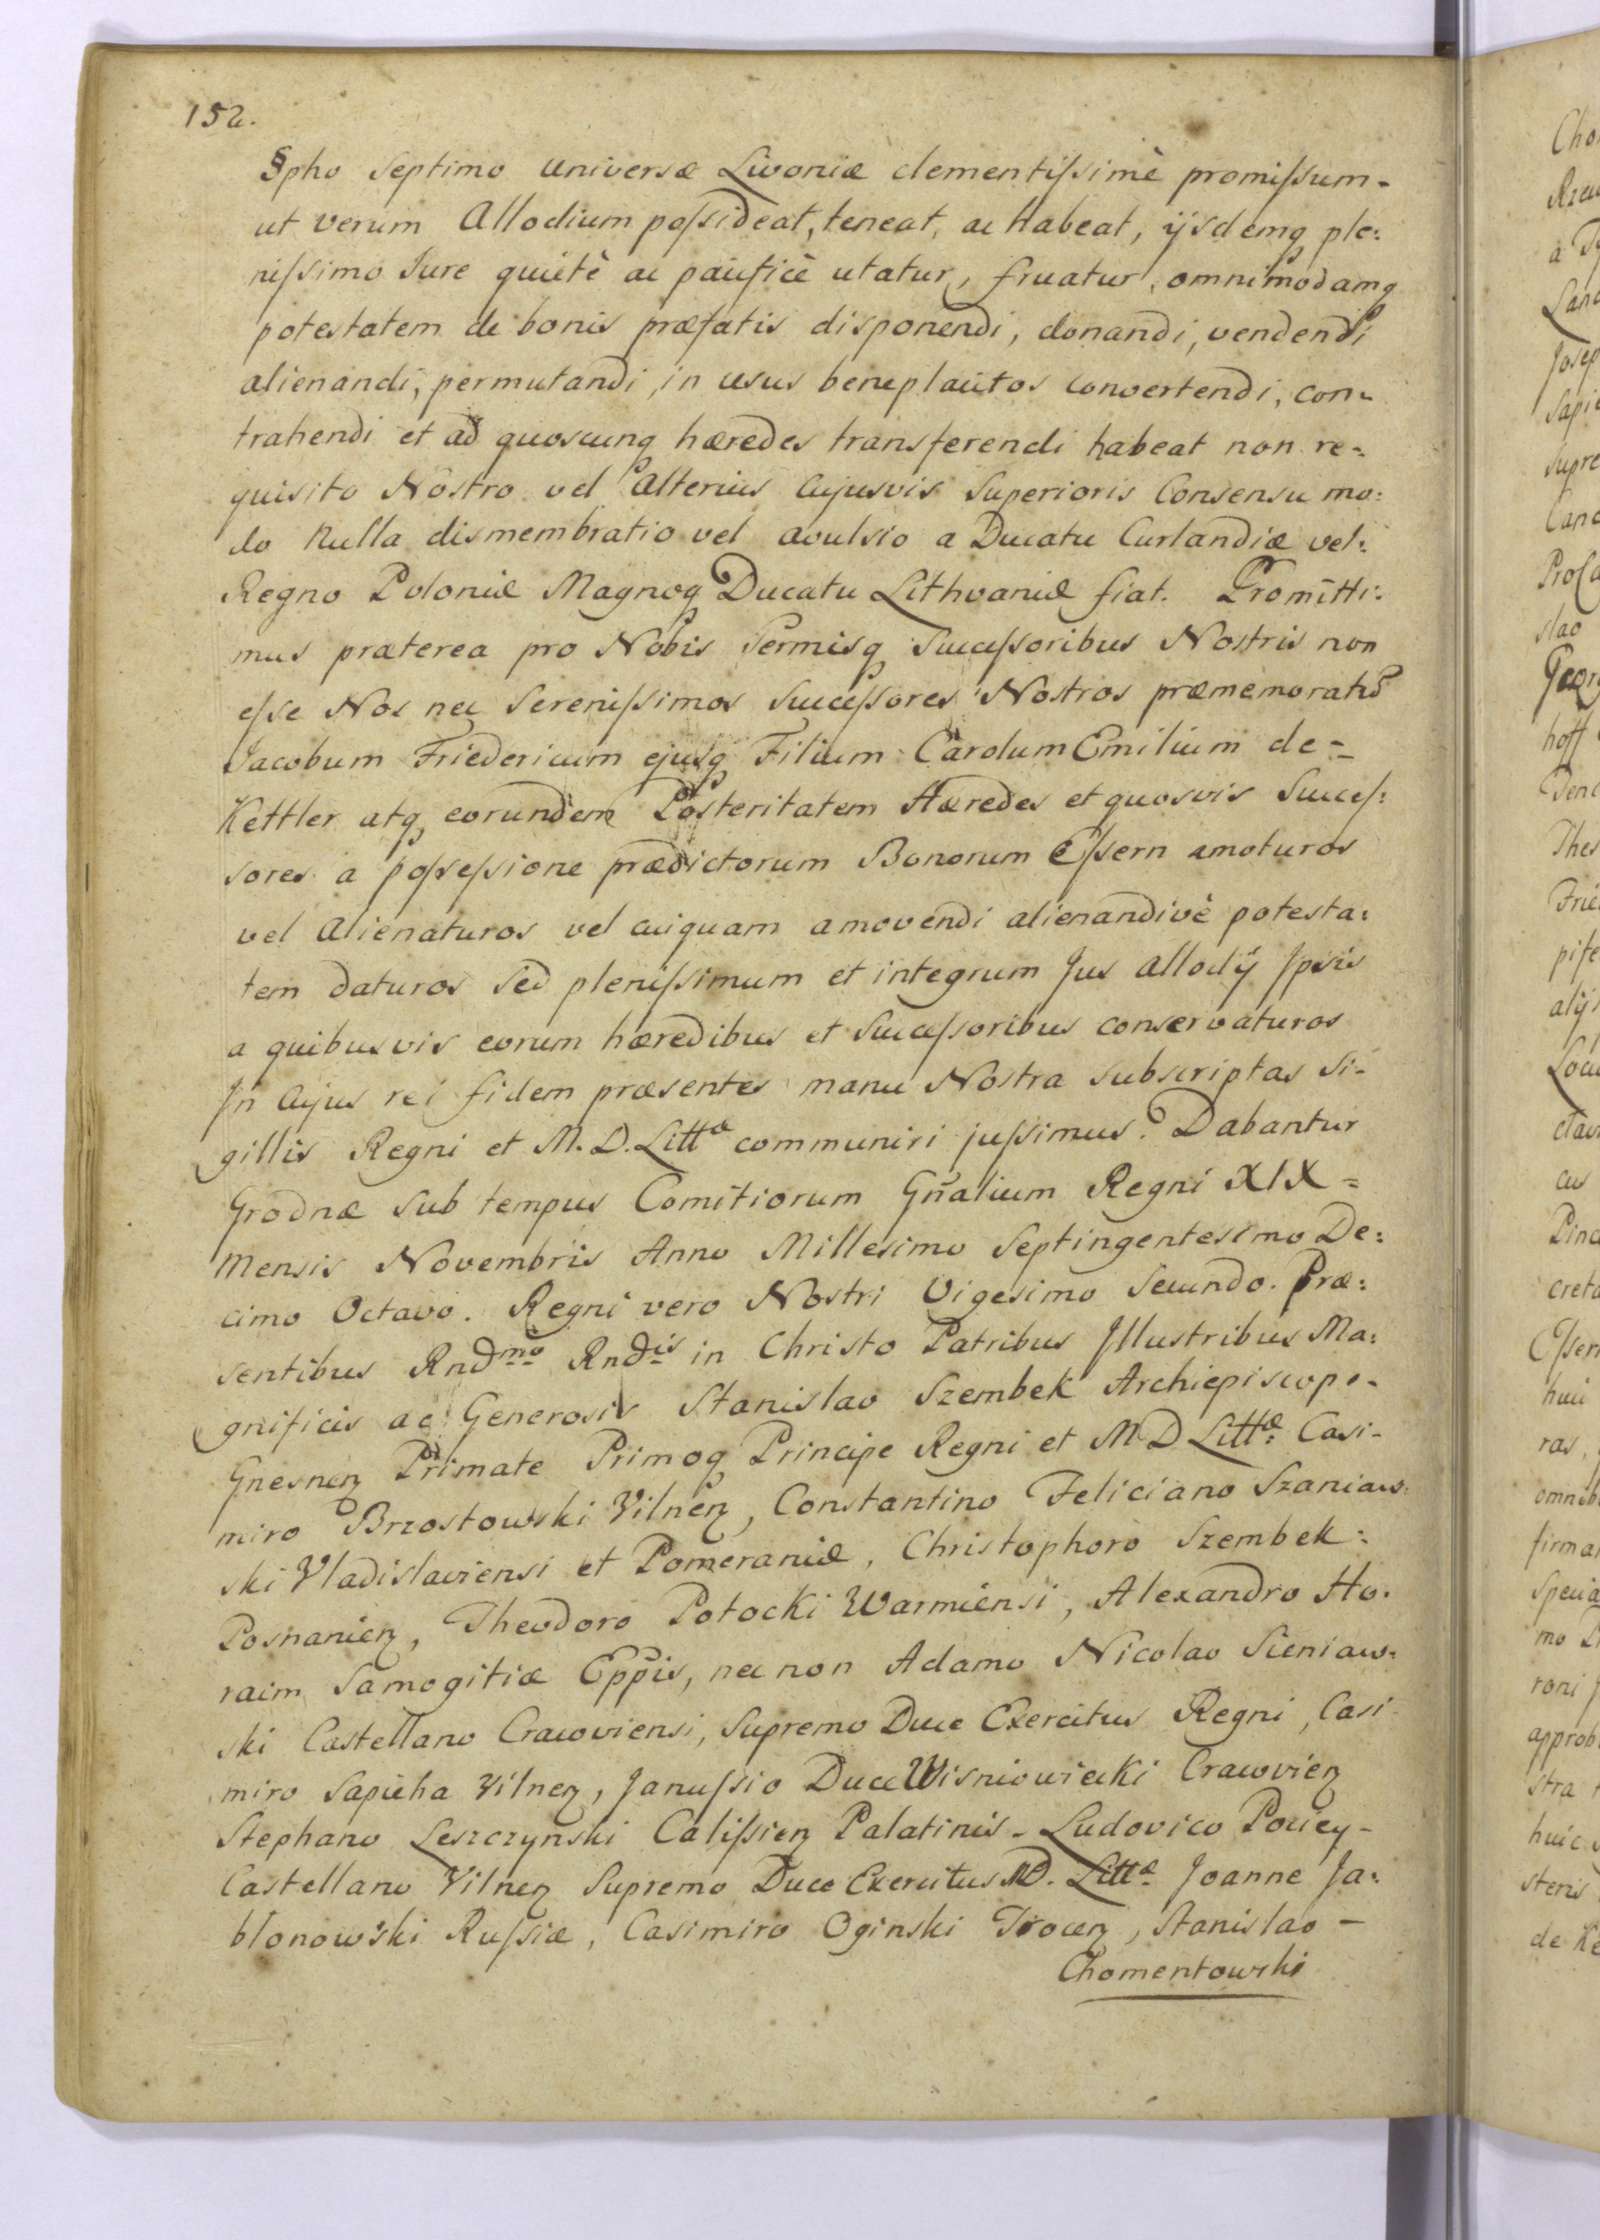 152.
§pho Septimo universæ Livoniæ clementissimè promissum-
ut verum Allodium possideat, teneat, ac Habeat, ijsdemq ple:
nissimo Iure quietè ac pacificè utatur, fruatur, omnimodamq
potestatem de bonis præfatis disponendi, donandi, vendendi
alienandi, permutandi, in usus beneplacitos convertendi, con-
trahendi et ad quoscunq hæredes transferendi habeat non re-
quisito Nostro vel alterius cujusvis Superioris Consensu mo:
do Nulla dismembratio vel avulsio a Ducatu Curlandiæ vel:
Regno Poloniæ Magnoq Ducatu Lithvaniæ fiat. Promitti:
mus præterea pro Nobis Sermisq Successoribus Nostris non
esse Nos nec Serenissimos Successores Nostros præmemoratu
Jacobum Friedericum ejusq Filium Carolum Emilium de=
Kettler atq eorundem Posteritatem Hæredes et quosvis Succes:
sores a possessione prædictorum Bonorum Essern amoturos
vel Alienaturos vel cuiquam amovendi alienandivè potesta:
tem daturos sed plenissimum et integrum Jus allodij Ipsis
a quibusvis eorum hæredibus et Successoribus conservaturos
In cujus rei fidem præsentes manu Nostra subscriptas Si-
gillis Regni et M. D. Littæ communiri jussimus. Dabantur
Grodnæ Sub tempus Comitiorum Gñalium Regni XIX=
Mensis Novembris Anno Millesimo Septingentesimo De:
cimo Octavo. Regni vero Nostri Vigesimo Secundo. Præ:
sentibus Rndmo Rndis in Christo Patribus Illustribus Ma:
gnificis ac Generosis Stanislao Szembek Archiepiscopo-
Gnesnen Primate Primoq Principe Regni et M D Littæ: Casi-
miro Brzostowski Vilnen, Constantino Feliciano Szaniaw:
ski Vladislaviensi et Pomeraniæ, Christophoro Szembek:
Posnanien, Theodoro Potocki Warmiensi, Alexandro Ho.
raim Samogitiæ Eppis, nec non Adamo Nicolao Sieniaw:
ski Castellano Cracoviensi, Supremo Duce Exercitus Regni, Casi-
miro Sapieha Vilnen, Janussio Duce Wisniowiecki Cracovien
Stephano Leszczynski Calissien Palatinis. Ludovico Pociey-
Castellano Vilnen Supremo Duce Exercitus MD. Littæ Joanne Ja:
blonowski Russiæ, Casimiro Oginski Trocen, Stanislao -
Chomentowski